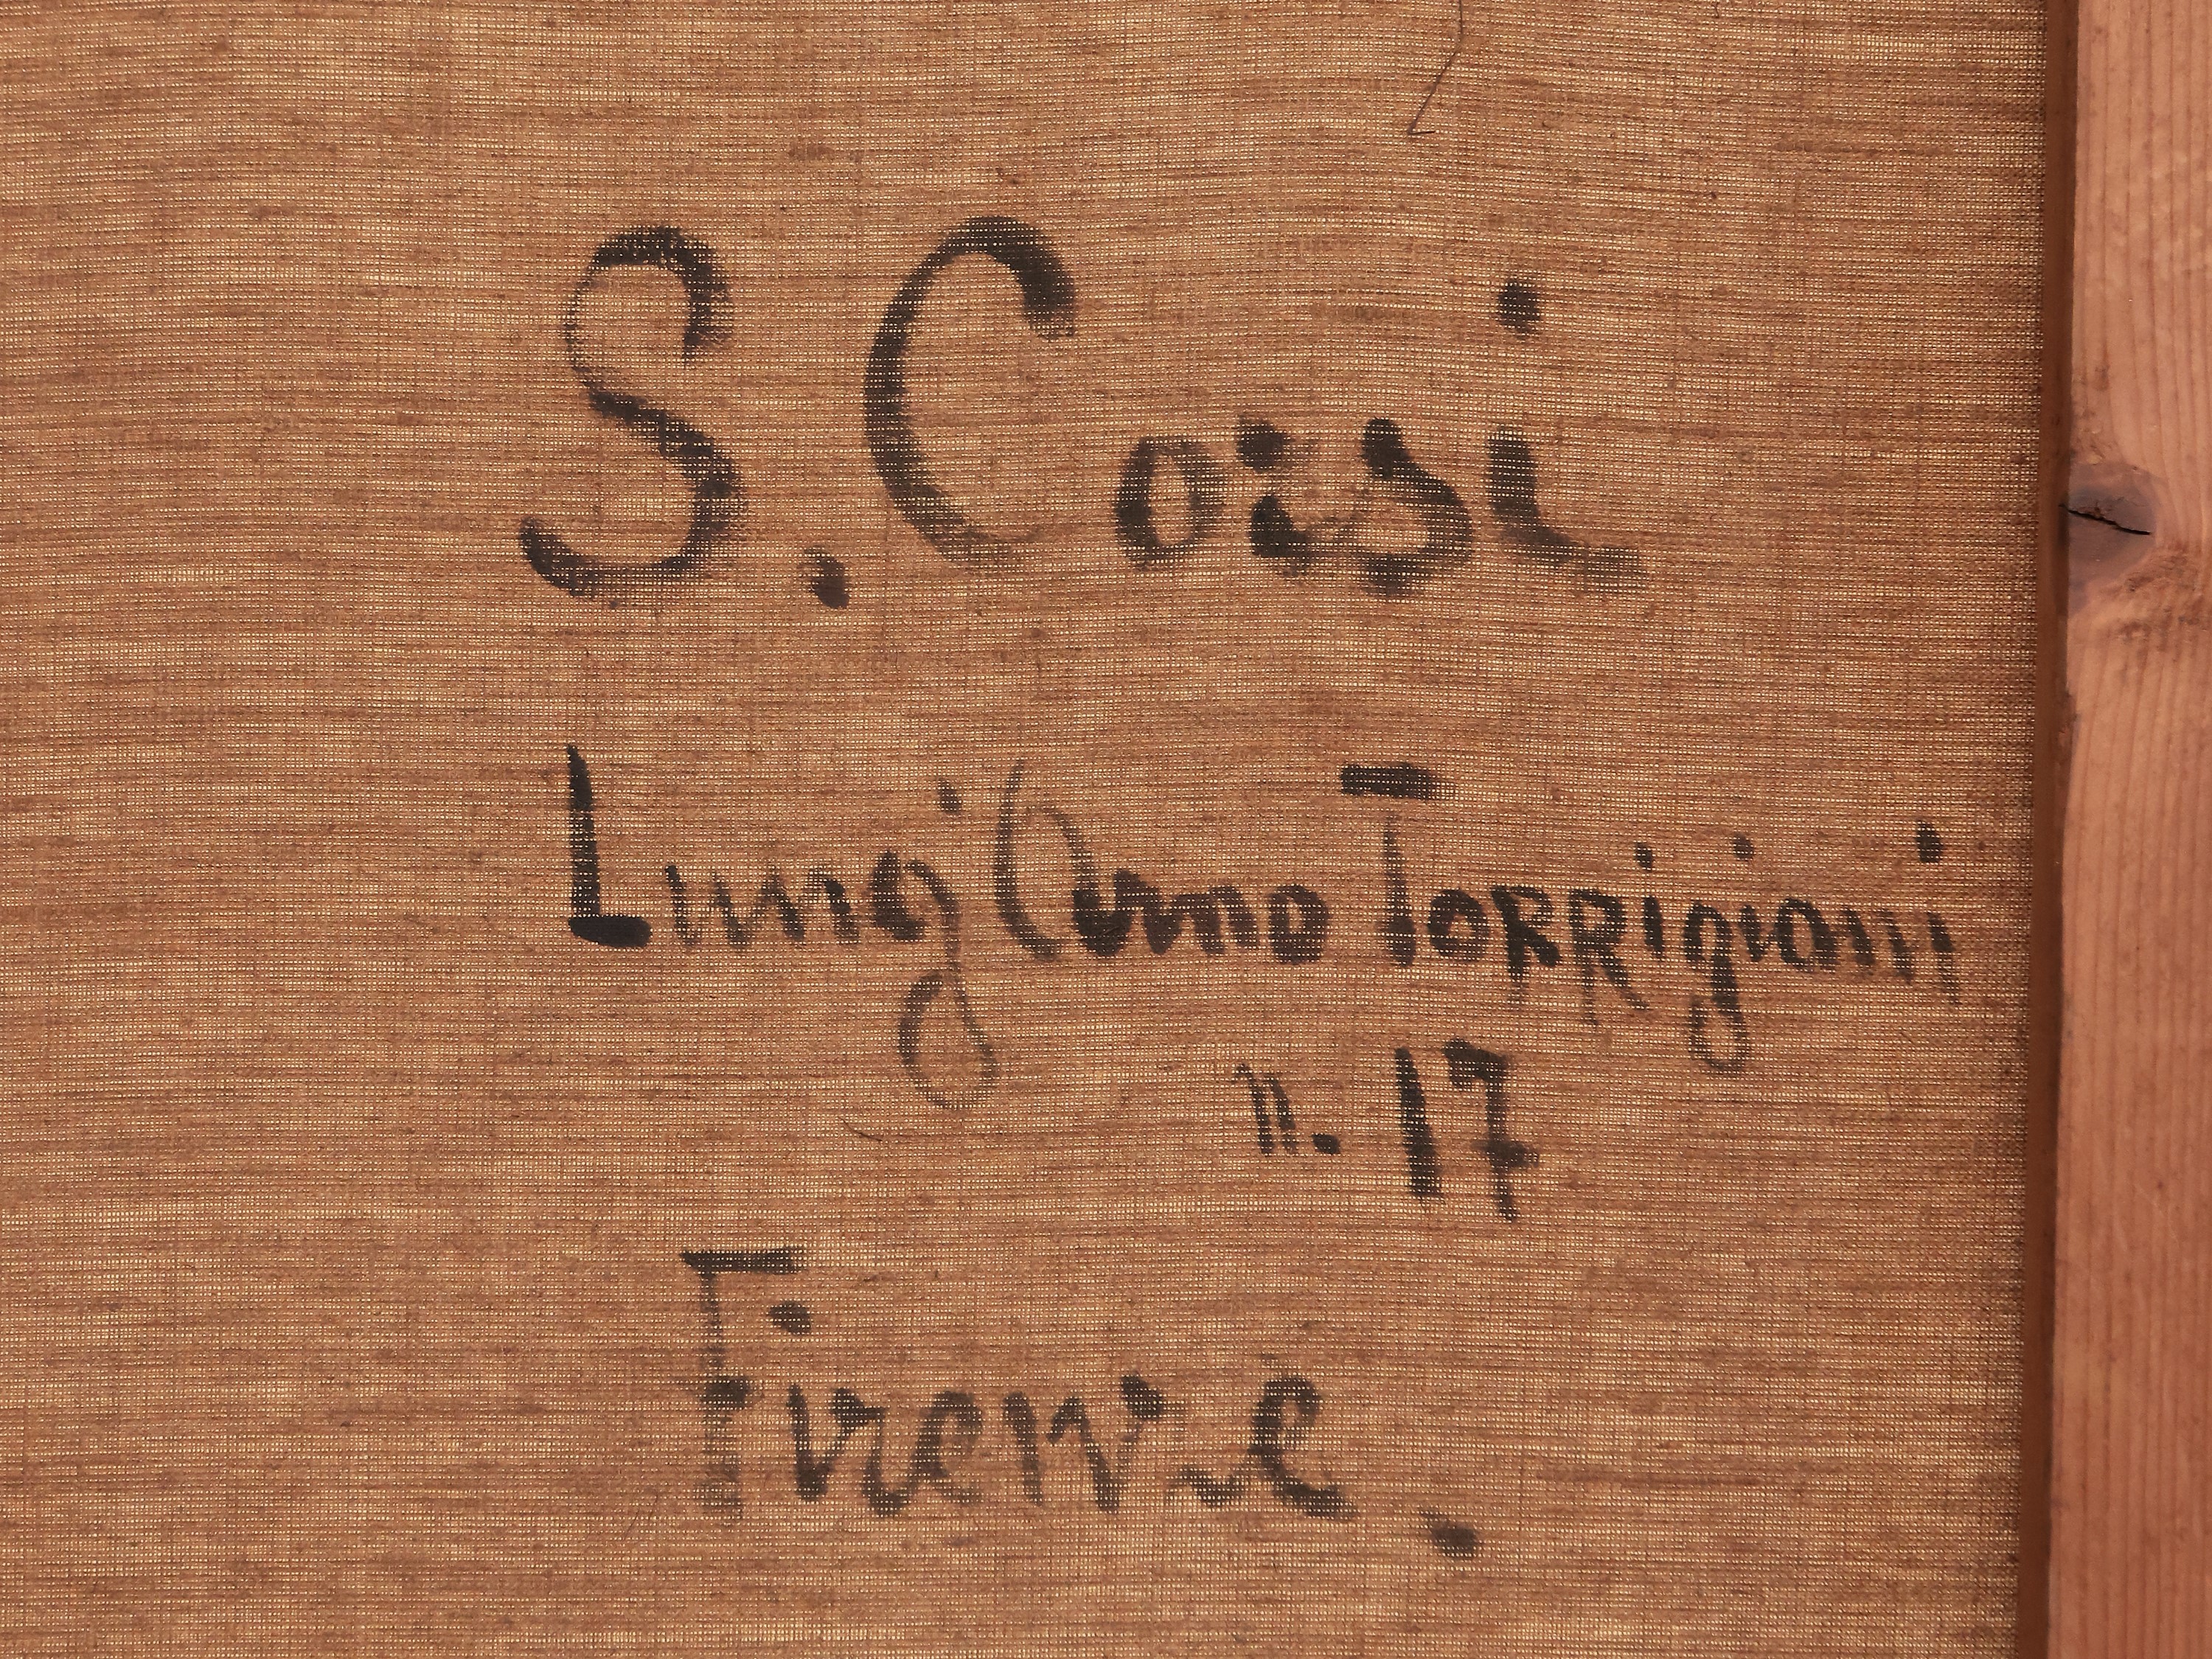 S. Coisi
Lung'Arno Torrigiani
n. 17
Firenze.